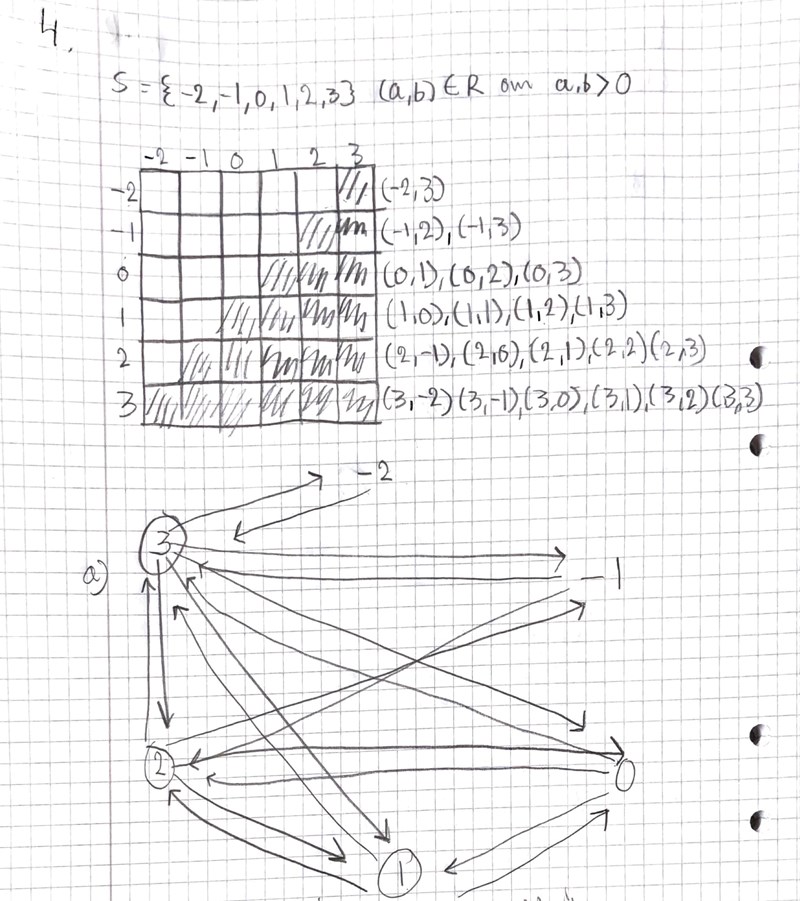 4.
S = {-2,-1,0,1,2,3} (a,b) ∈ R om a,b>0
-2 -1 0 1 2 3
-2 (-2,3)
-1 (-1,2),(-1,3)
0 (0,1),(0,2),(0,3)
1 (1,0),(1,1),(1,2),(1,3)
2 (2,-1),(2,0),(2,1),(2,2)(2,3)
3 (3,-2)(3,-1),(3,0),(3,1),(3,2)(3,3)
-2
3
a) -1
2 0
1